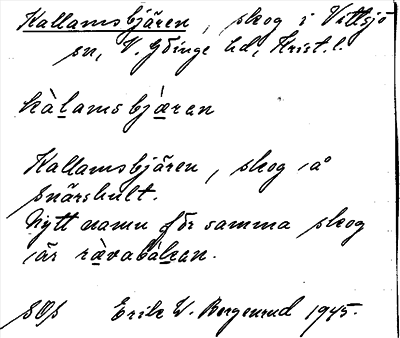 Kallamsbjären, skog i Vittsjö
sn, V. Göinge hd, Krist. l.
kàlamsbjæ̀ran
Kallamsbjären, skog å
Snärshult.
Nytt namn för samma skog
är ràvabàkan.
SOS Erik W. Bergenrud 1945.